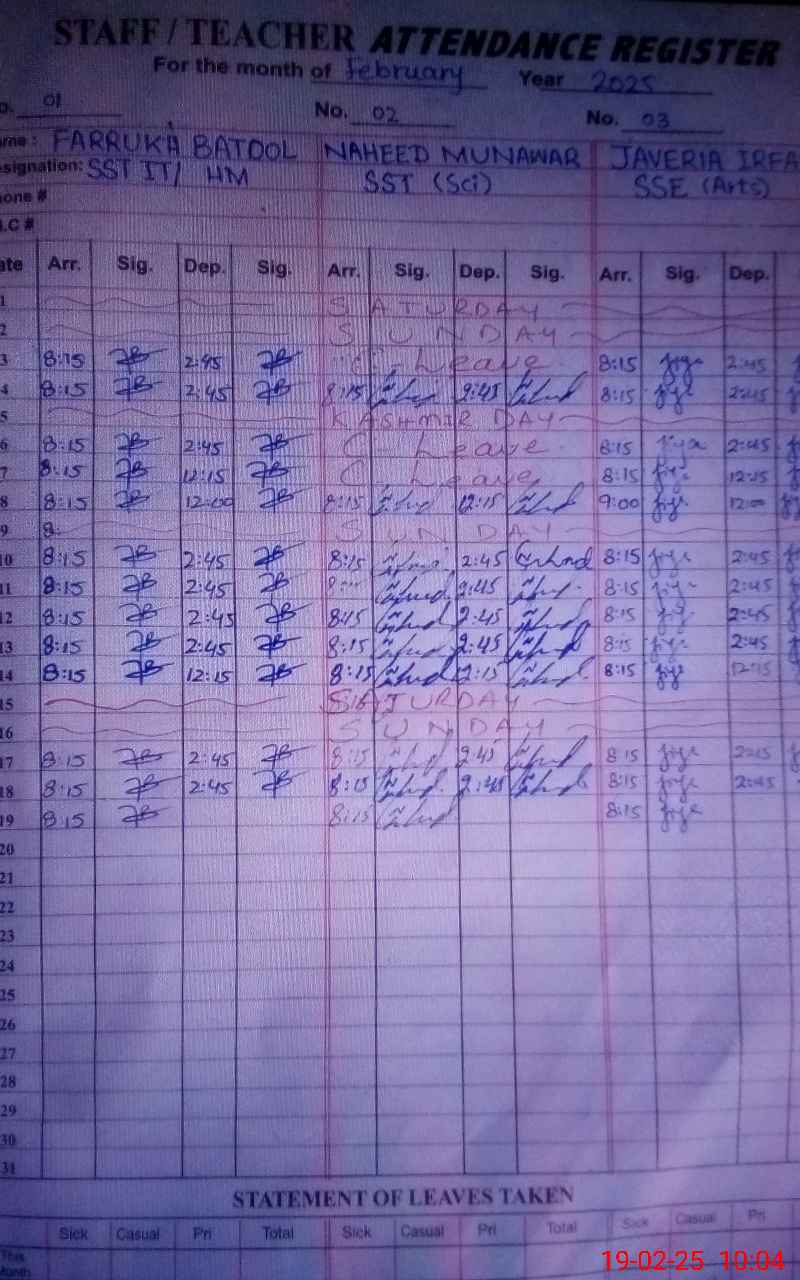 STAFF / TEACHER ATTENDANCE REGISTER
For the month of February Year 2025
01 No. 02 No. 03
FARRUKA BATOOL NAHEED MUNAWAR JAVERIA IRFA
signation: SST IT/ HM SST (Sci) SSE (Arts)
hone #
.C #
ate Arr. Sig. Dep. Sig. Arr. Sig. Dep. Sig. Arr. Sig. Dep.
1 SATURDAY
2 SUNDAY
3 8:15 2:45 C- Leave 8:15 2:45
4 8:15 2:45 8:15 2:45 8:15 2:45
5 KASHMIR DAY
6 8:15 2:45 C- Leave 8:15 2:45
7 8:15 12:15 C- Leave 8:15 12:15
8 8:15 12:00 8:15 12:15 9:00 12:00
9 8: SUNDAY
10 8:15 2:45 8:15 2:45 8:15 2:45
11 8:15 2:45 2:45 8:15 2:45
12 8:15 2:45 8:15 2:45 8:15 2:45
13 8:15 2:45 8:15 2:45 8:15 2:45
14 8:15 12:15 8:15 8:15 12:15
15 SATURDAY
16 SUNDAY
17 8:15 2:45 8:15 2:45 8:15
18 8:15 2:45 8:15 2:45 8:15 2:45
19 8:15 8:15 8:15
20
21
22
23
24
25
26
27
28
29
30
31
STATEMENT OF LEAVES TAKEN
Sick Casual Pri Total Sick Casual Pri Total Sick Casual Pri
This
Month
19-02-25 10:04